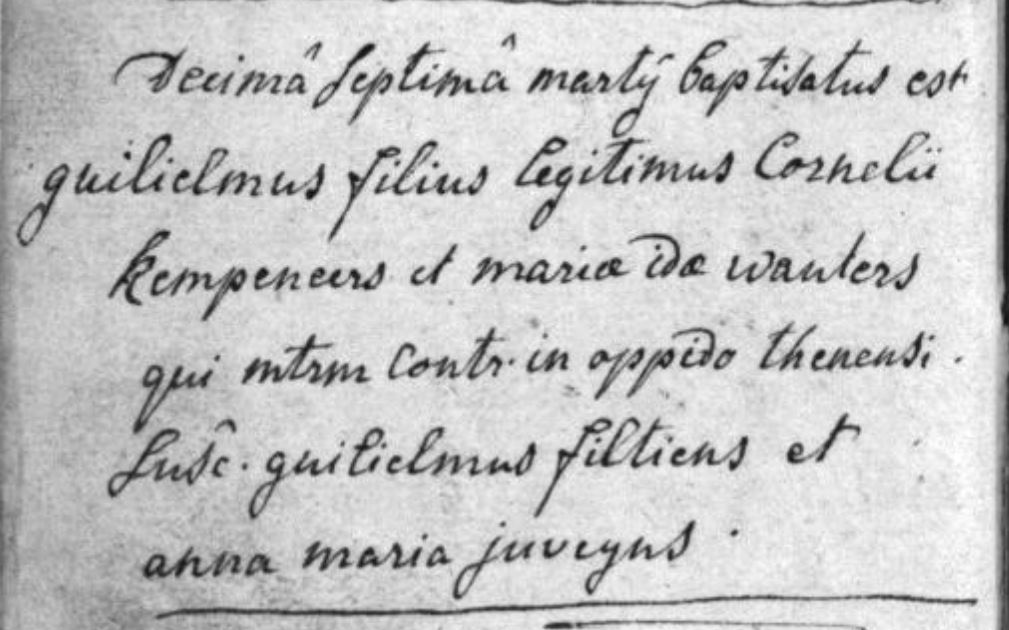 Decimâ septimâ martÿ baptisatus est
guilielmus filius legitimus Cornelii
kempeneers et mariæ idæ wauters
qui mtrm contr. in oppido thenensi.
Susc. guilielmus filtiens et
anna maria juveyns.